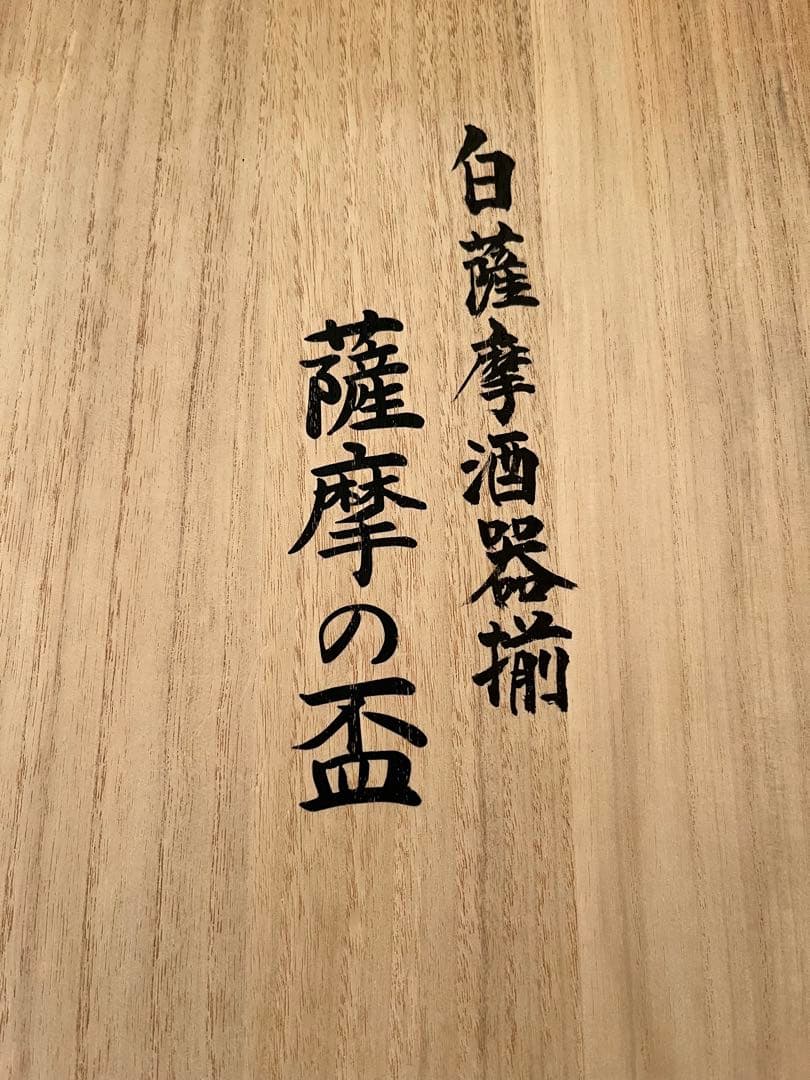 白薩摩酒器揃
薩摩の盃